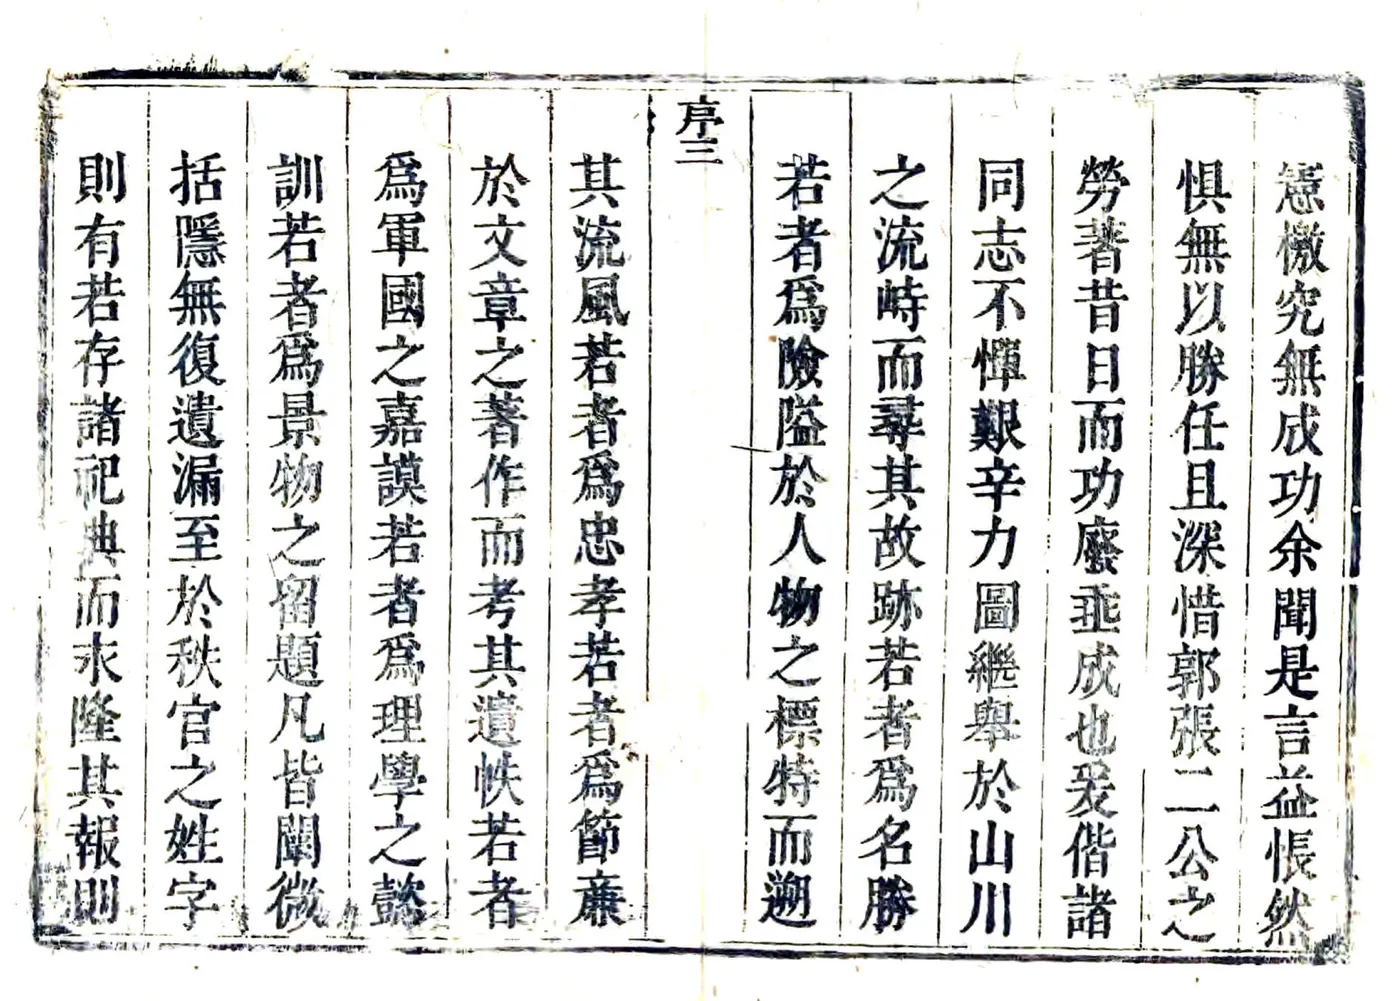 憲檄究無成功余聞是言益悵然
惧無以勝任且深惜郭張二公之
勞著昔日而功廢垂成也爰偕諸
同志不憚艱辛力圖繼舉於山川
之流峙而尋其故跡若者爲名勝
若者爲險隘於人物之標特而遡
序三
其流風若者爲忠孝若者爲節亷
於文章之著作而考其遺帙若者
爲軍國之嘉謨若者爲理學之懿
訓若者爲景物之留題凡皆闡微
括隱無復遺漏至於秩官之姓字
則有若存諸祀典而永隆其報則